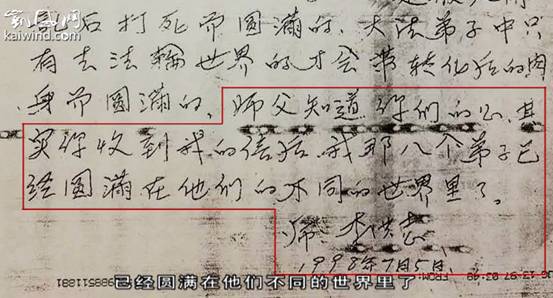 凯风网
kaiwind.com
后打死而圆满的。大法弟子中只
有去法轮世界的才会带转化后的肉
身而圆满的。师父知道你们的心。其
实你收到我的信后，我那八个弟子已
经圆满在他们的不同的世界里了。
师 李洪志
1998年7月5日
FROM:
已经圆满在他们不同的世界里了